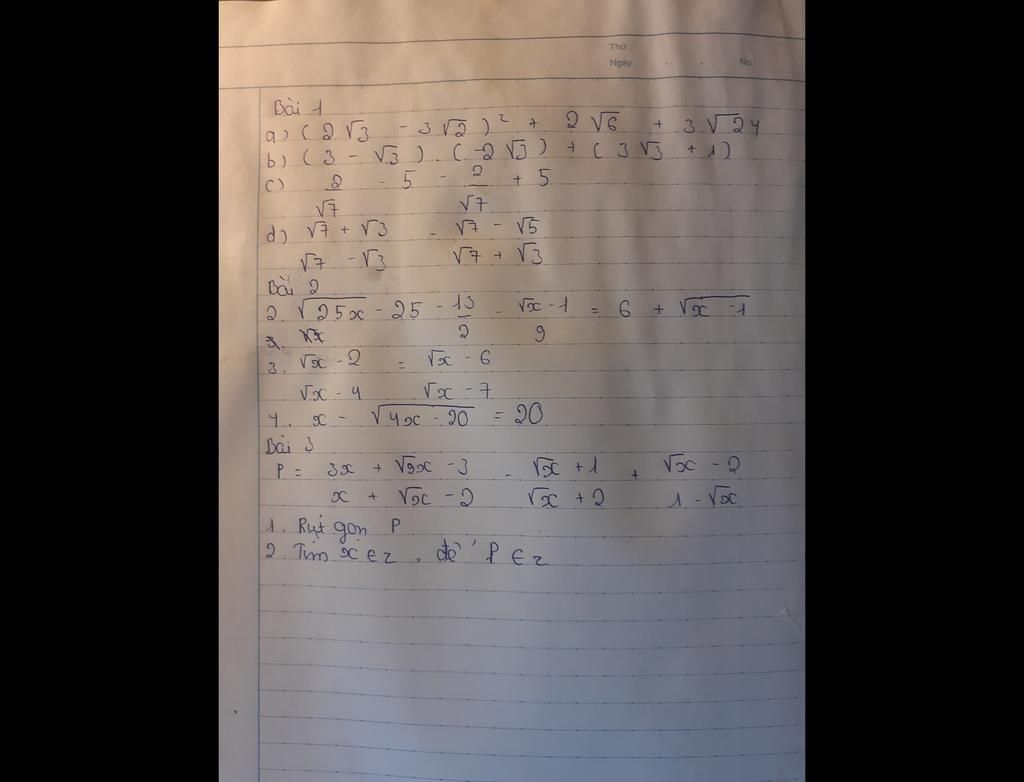 Thứ
Ngày . . No.
Bài 1
a) ( 2 √3 - 3 √2 )² + 2 √6 + 3 √24
b) ( 3 - √3 ) . ( -2 √3 ) + ( 3 √3 + 1 )
c) 2 - 5 - 2 + 5
√7 √7
d) √7 + √3 - √7 - √5
√7 - √3 √7 + √3
Bài 2
2. √25x - 25 - 13 - √x - 1 = 6 + √x - 1
2 9
3. √x - 2 = √x - 6
√x - 4 √x - 7
4. x - √4x - 20 = 20
Bài 3
P = 3x + √9x - 3 - √x + 1 + √x - 2
x + √x - 2 √x + 2 1 - √x
1. Rút gọn P
2 Tìm x ∈ z , để P ∈ z